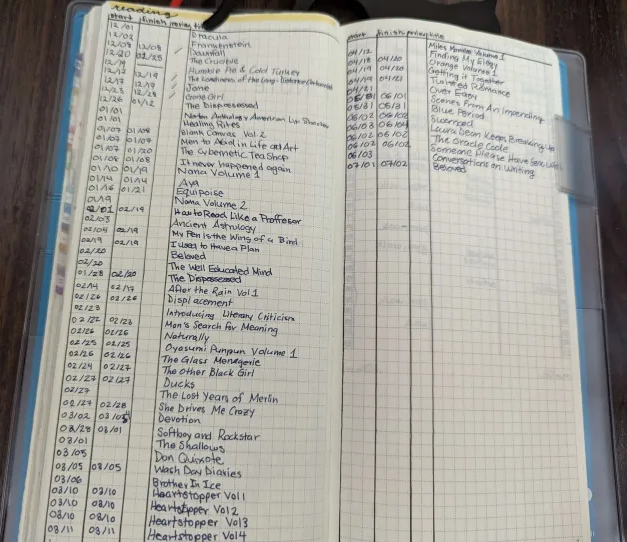 reading
start finish review title
12/01 Dracula
12/02 Frankenstein
12/08 12/08 Downfall
12/20 02/25 The Crucible
12/19 Humble Pie & Cold Turkey
12/17 12/19 The Loneliness of the Long-Distance
12/19 Jane
12/23 12/28 Gone Girl
12/26 01/12 The Dispossessed
01/01 Norton Anthology American Lit Shorter
01/01 Healing Rites
01/07 01/08 Blank Canvas Vol. 2
01/07 01/07 Men to Avoid in Life and Art
01/07 01/20 The Cybernetic Tea Shop
01/08 01/08 It never happened again
01/10 01/19 Nana Volume 1
01/14 01/14 Aya
01/16 01/21 Equipoise
01/19 Nana Volume 2
02/01 02/19 How to Read Like a Proffesor
02/03 Ancient Astrology
02/04 02/19 My Pen is the Wing of a Bird
02/19 02/19 I Used to Have a Plan
02/20 Beloved
02/20 The Well Educated Mind
01/28 02/20 The Dispossessed
02/14 02/17 After the Rain Vol 1
02/26 02/26 Displacement
02/23 Introducing Literary Criticism
02/22 02/23 Man's Search for Meaning
02/26 02/26 Naturally
02/25 02/25 Oyasumi Punpun Volume 1
02/26 02/26 The Glass Menagerie
02/24 02/27 The Other Black Girl
02/27 02/27 Ducks
02/27 The Lost Years of Merlin
02/27 02/28 She Drives Me Crazy
03/02 Devotion
02/28 03/01 Softboy and Rockstar
03/01 The Shallows
03/05 Don Quixote
03/05 03/05 Wash Day Diaries
03/06 Brother In Ice
03/10 03/10 Heartstopper Vol 1
03/10 03/10 Heartstopper Vol 2
03/10 03/10 Heartstopper Vol 3
03/11 03/11 Heartstopper Vol 4
start finish review title
04/12 Miles Morales Volume 1
04/18 04/20 Finding My Elegy
04/19 04/20 Orange Volume 1
04/19 04/21 Getting it Together
04/21 Twisted Romance
06/01 Over Easy
05/31 05/31 Scenes From An Impending
06/02 06/02 Blue Period
06/03 06/04 Suncatcher
06/02 06/02 Laura Dean Keeps Breaking Up
06/02 06/02 The Oracle Code
06/03 Someone Please Have Sex
07/01 07/02 Conversations on Writing
Beloved